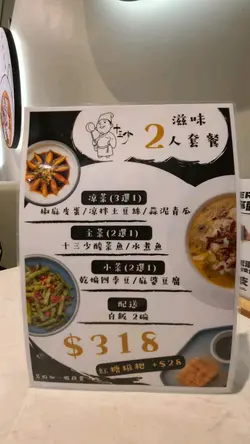 十三少
滋味
2人套餐
涼菜(3選1)
椒麻皮蛋/涼拌土豆絲/蒜泥青瓜
主菜(2選1)
十三少酸菜魚/水煮魚
小菜(2選1)
乾煸四季豆/麻婆豆腐
配送
白飯 2碗
$318
紅糖糍粑 +$28